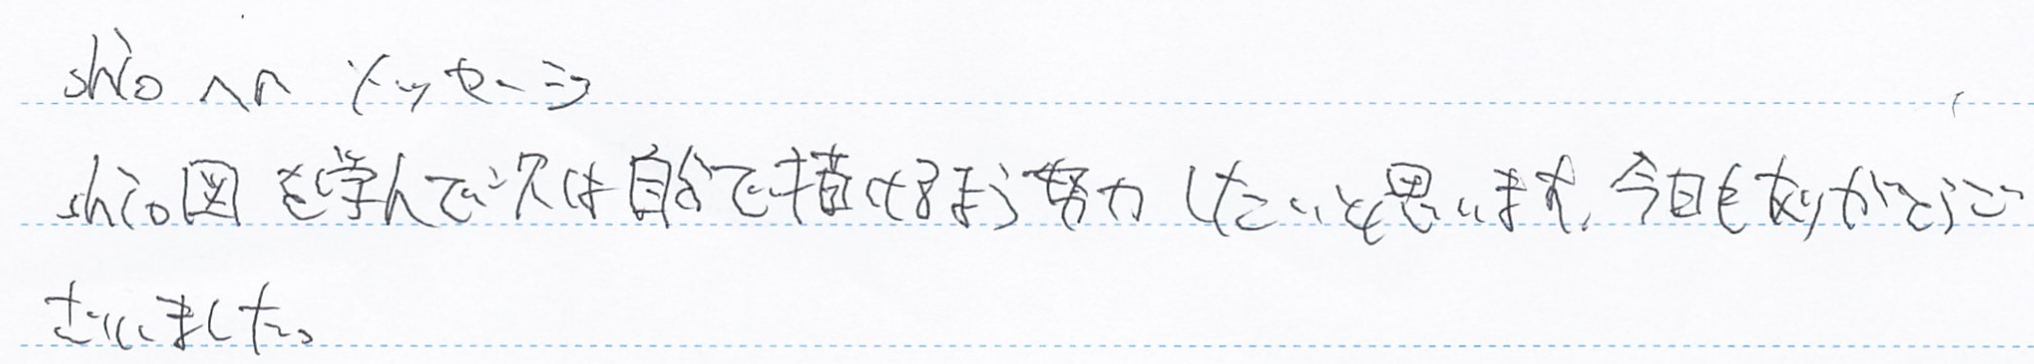 shioへの メッセージ
shio図を学んで次は自分で描けるよう努力したいと思います。今日もありがとうご
ざいました。